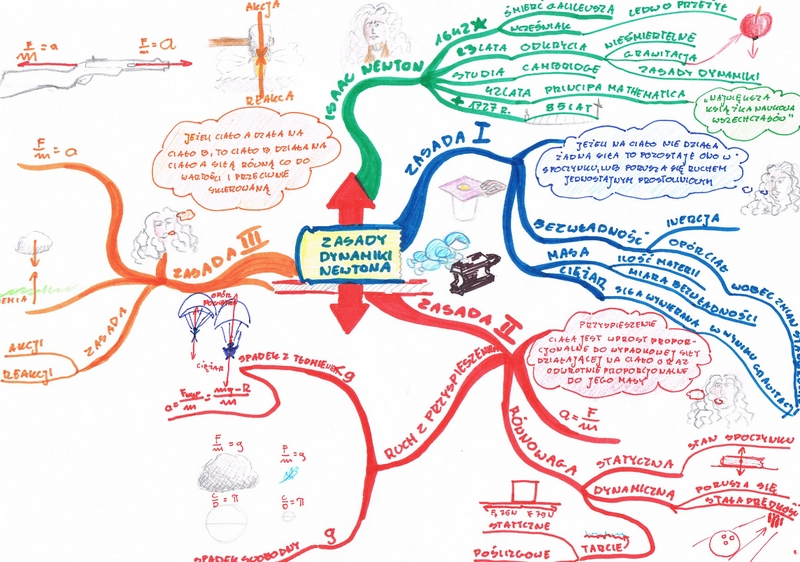 ZASADY
DYNAMIKI
NEWTONA
ISAAC NEWTON
1642
ŚMIERĆ GALILEUSZA
WCZEŚNIAK
LEDWO PRZEŻYŁ
23 LATA
ODKRYCIA
NIEŚMIERTELNE
GRAWITACJA
ZASADY DYNAMIKI
STUDIA
CAMBRIDGE
42 LATA
PRINCIPA MATHEMATICA
„NAJWIĘKSZA
KSIĄŻKA NAUKOWA
WSZECHCZASÓW"
+ 1727 R.
85 LAT
ZASADA I
JEŻELI NA CIAŁO NIE DZIAŁA
ŻADNA SIŁA TO POZOSTAJE ONO W
SPOCZYNKU, LUB PORUSZA SIĘ RUCHEM
JEDNOSTAJNYM PROSTOLINIOWYM
BEZWŁADNOŚĆ
INERCJA
OPÓR CIAŁ
WOBEC ZMIAN
MASA
ILOŚĆ MATERII
MIARA BEZWŁADNOŚCI
CIĘŻAR
SIŁA WYWIERANA W WYNIKU GRAWITACJI
ZASADA II
PRZYSPIESZENIE
CIAŁA JEST WPROST PROPOR-
CJONALNE DO WYPADKOWEJ SIŁY
DZIAŁAJĄCEJ NA CIAŁO ORAZ
ODWROTNIE PROPORCJONALNE
DO JEGO MASY
a = F/m
RÓWNOWAGA
STATYCZNA
STAN SPOCZYNKU
DYNAMICZNA
PORUSZA SIĘ
STAŁA PRĘDKOŚĆ
TARCIE
STATYCZNE
POŚLIZGOWE
F, 75N F 75N
RUCH Z PRZYSPIESZENIEM
SPADEK Z TŁUMIENIEM
<g
OPÓR
POWIETRZA
CIĘŻAR
a = Fwyp/m = mg-R/m
SPADEK SWOBODNY
g
F/m = g
F/m = g
C/D = π
C/D = π
ZASADA III
JEŻELI CIAŁO A DZIAŁA NA
CIAŁO B, TO CIAŁO B DZIAŁA NA
CIAŁO A SIŁĄ RÓWNĄ CO DO
WARTOŚCI I PRZECIWNIE
SKIEROWANĄ
F/m = a
F/m = a
F/m = a
AKCJA
REAKCJA
ZASADA
AKCJI
REAKCJI